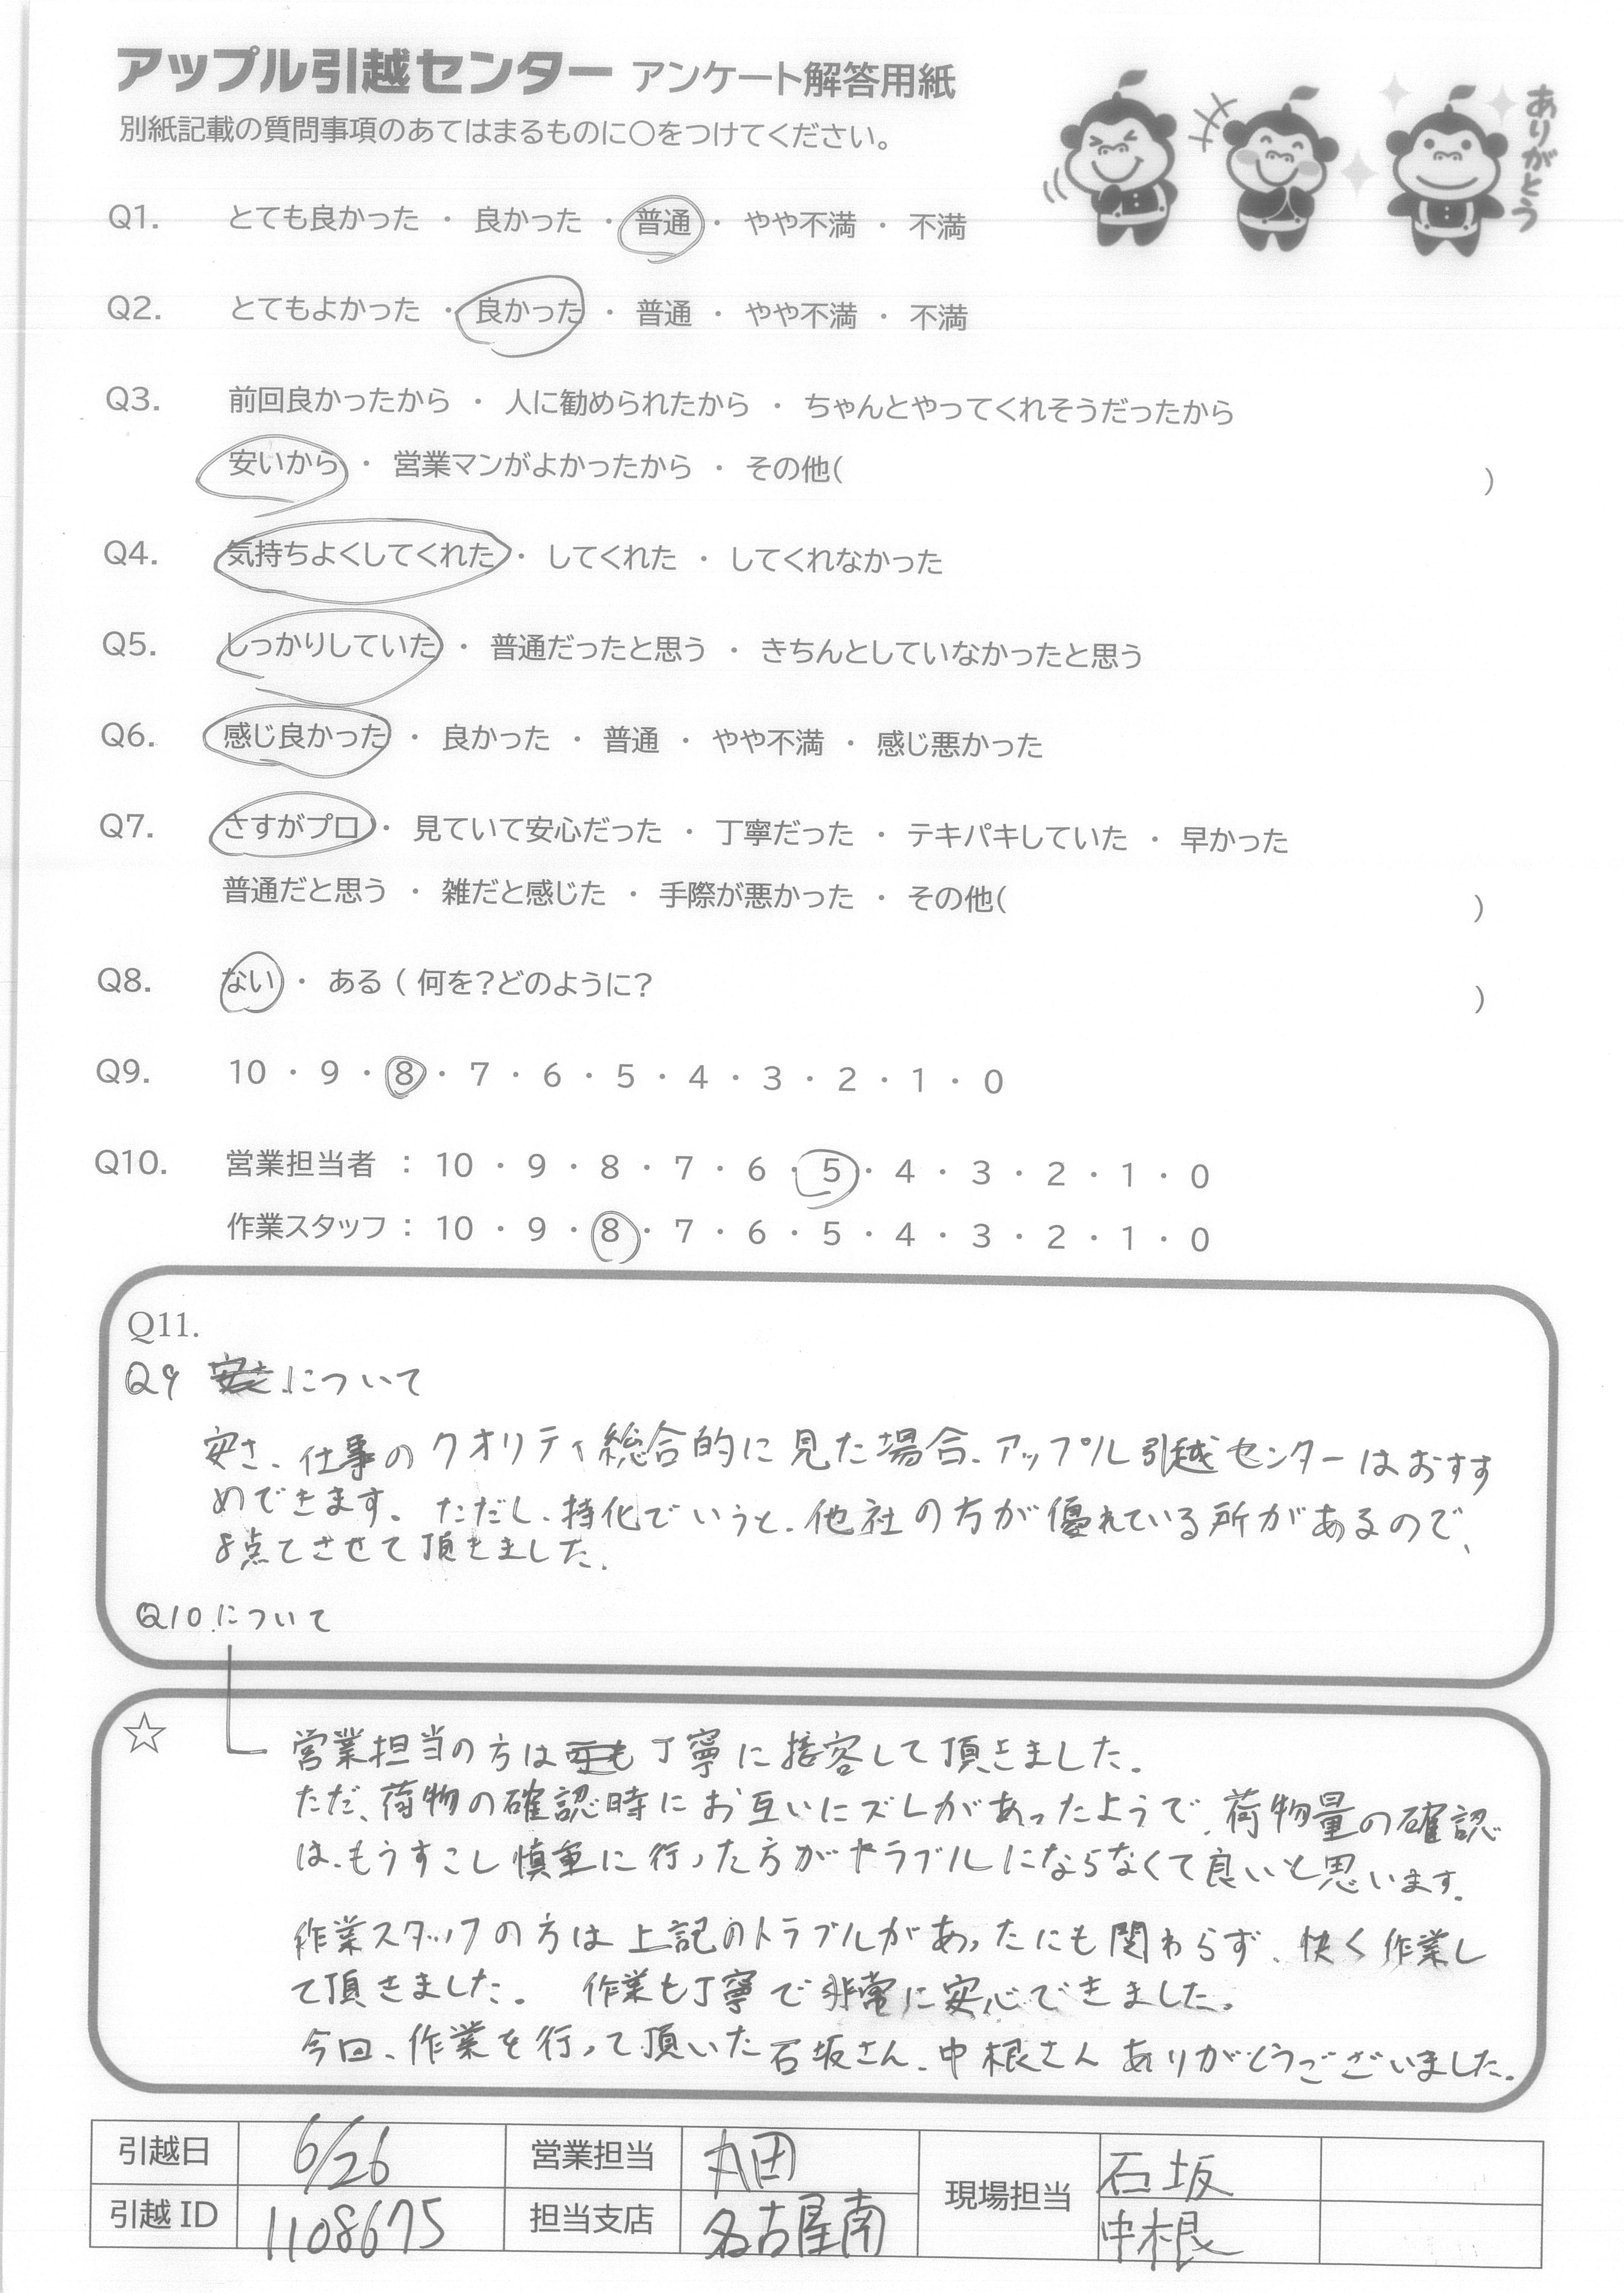 アップル引越センター アンケート解答用紙
別紙記載の質問事項のあてはまるものに〇をつけてください。
ありがとう
Q1. とても良かった ・ 良かった ・ 普通 ・ やや不満 ・ 不満
Q2. とてもよかった ・ 良かった ・ 普通 ・ やや不満 ・ 不満
Q3. 前回良かったから ・ 人に勧められたから ・ ちゃんとやってくれそうだったから
安いから ・ 営業マンがよかったから ・ その他( )
Q4. 気持ちよくしてくれた ・ してくれた ・ してくれなかった
Q5. しっかりしていた ・ 普通だったと思う ・ きちんとしていなかったと思う
Q6. 感じ良かった ・ 良かった ・ 普通 ・ やや不満 ・ 感じ悪かった
Q7. さすがプロ ・ 見ていて安心だった ・ 丁寧だった ・ テキパキしていた ・ 早かった
普通だと思う ・ 雑だと感じた ・ 手際が悪かった ・ その他( )
Q8. ない ・ ある ( 何を?どのように? )
Q9. 10 ・ 9 ・ 8 ・ 7 ・ 6 ・ 5 ・ 4 ・ 3 ・ 2 ・ 1 ・ 0
Q10. 営業担当者 : 10 ・ 9 ・ 8 ・ 7 ・ 6 ・ 5 ・ 4 ・ 3 ・ 2 ・ 1 ・ 0
作業スタッフ : 10 ・ 9 ・ 8 ・ 7 ・ 6 ・ 5 ・ 4 ・ 3 ・ 2 ・ 1 ・ 0
Q11.
Q9 について
安さ、仕事のクオリティ総合的に見た場合、アップル引越センターはおすす
めできます。ただし、特化でいうと、他社の方が優れている所があるので、
8点てさせて頂きました。
Q10.について
☆ 営業担当の方は 丁寧に接客して頂きました。
ただ、荷物の確認時にお互いにズレがあったようで、荷物量の確認
は、もうすこし慎重に行った方がトラブルにならなくて良いと思います。
作業スタッフの方は上記のトラブルがあったにも関わらず、快く作業し
て頂きました。 作業も丁寧で非常に安心できました。
今回、作業を行って頂いた石坂さん、中根さんありがとうございました。
引越日 6/26 営業担当 丸田 現場担当 石坂
引越ID 1108675 担当支店 名古屋南 中根